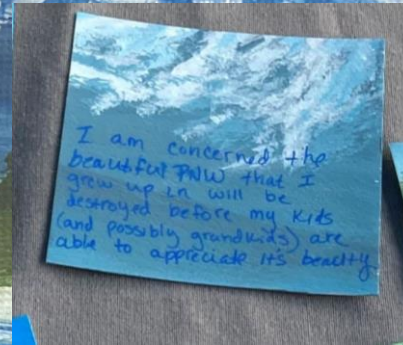 I am concerned the
beautiful PNW that I
grew up in will be
destroyed before my kids
(and possibly grandkids) are
able to appreciate it's beautty